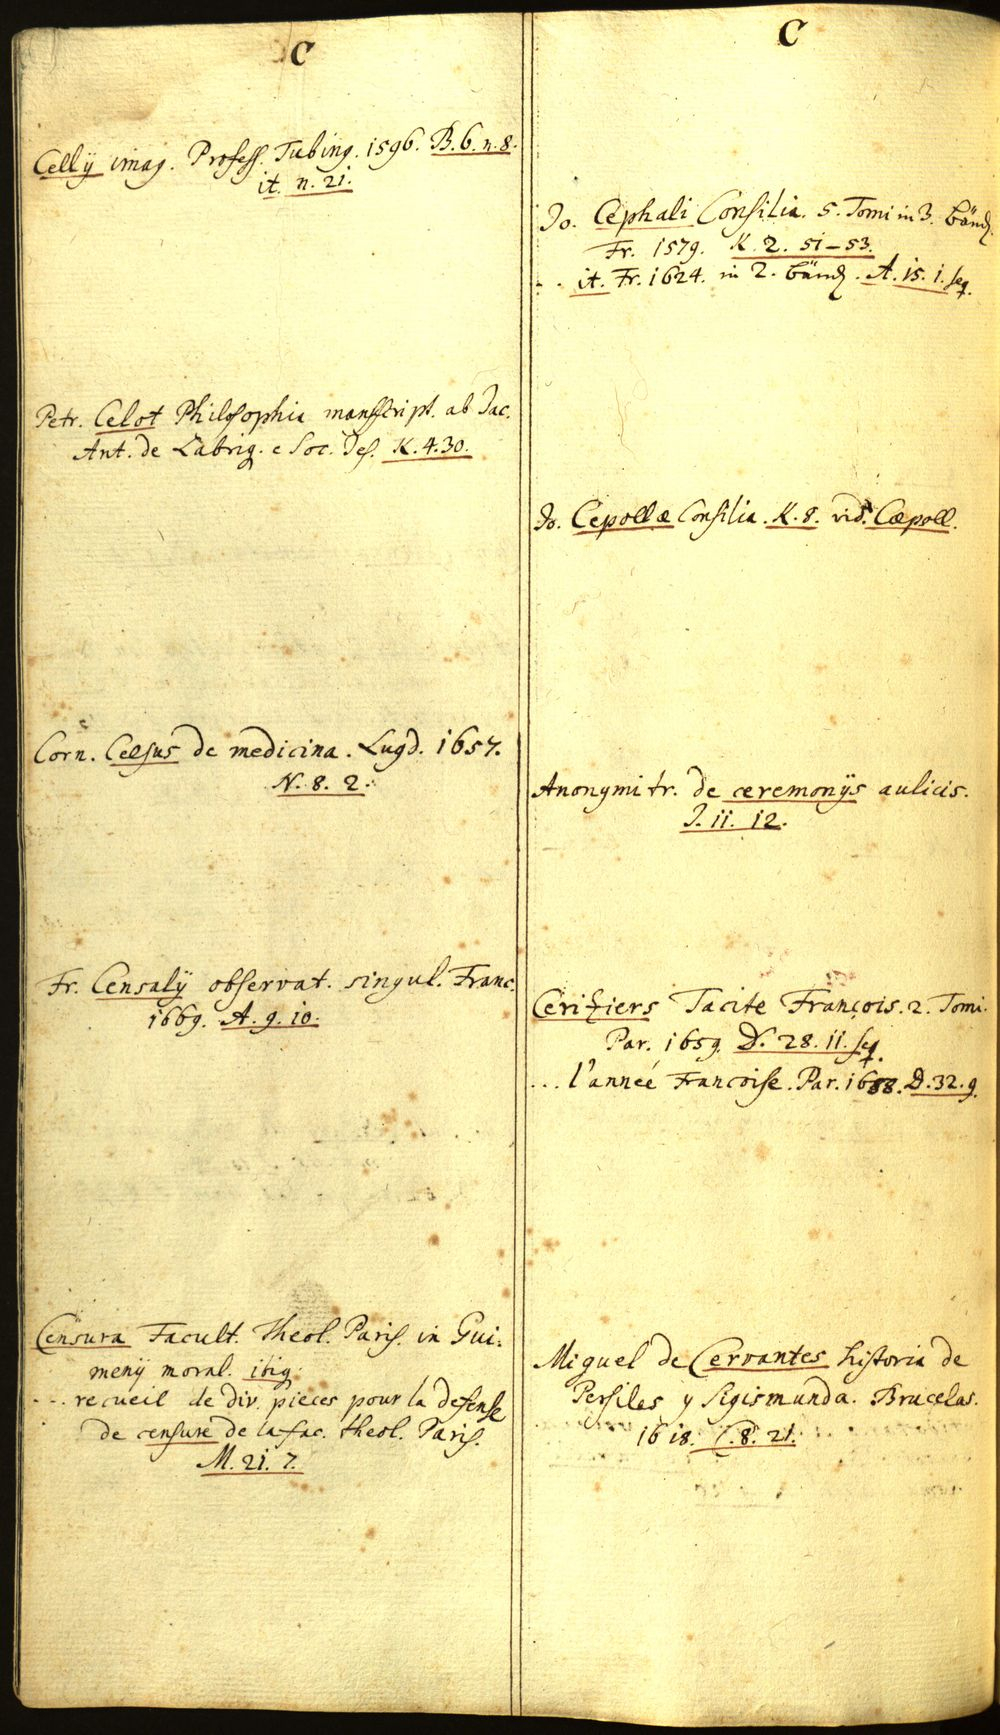 C
Cellij imag. Profess. Tubing. 1596. B. 6. n. 8.
it. n. 21.
Petr. Celot Philosophia manscript. ab Jac.
Ant. de Labrig. e Soc. Jes. K. 4. 30.
Corn. Celsus de medicina. Lugd. 1657.
N. 8. 2.
Fr. Censalij observat. singul. Franc.
1669. A. 9. 10.
Censura Facult. theol. Paris. in Gui-
menij moral. ibig.
... recueil de div. pieces pour la defense
de censure de la fac. theol. Paris.
M. 21. 7.
C
Jo. Cephali Consilia. 5. Tomi in 3. bänd.
Fr. 1579. K. 2. 51-53.
.. it. Fr. 1624. in 2. bänd. A. 15. 1. seq.
Jo. Cepollæ Consilia. K. 8. vid. Cæpoll.
Anonymi tr. de ceremonijs aulicis.
J. 11. 12.
Ceriziers Tacite François. 2. Tomi.
Par. 1659. D. 28. 11. seq.
... l'anneé Francoise. Par. 1688. D. 32. 9.
Miguel de Cervantes historia de
Persiles y Sigismunda. Brucelas.
1618. C. 8. 21.